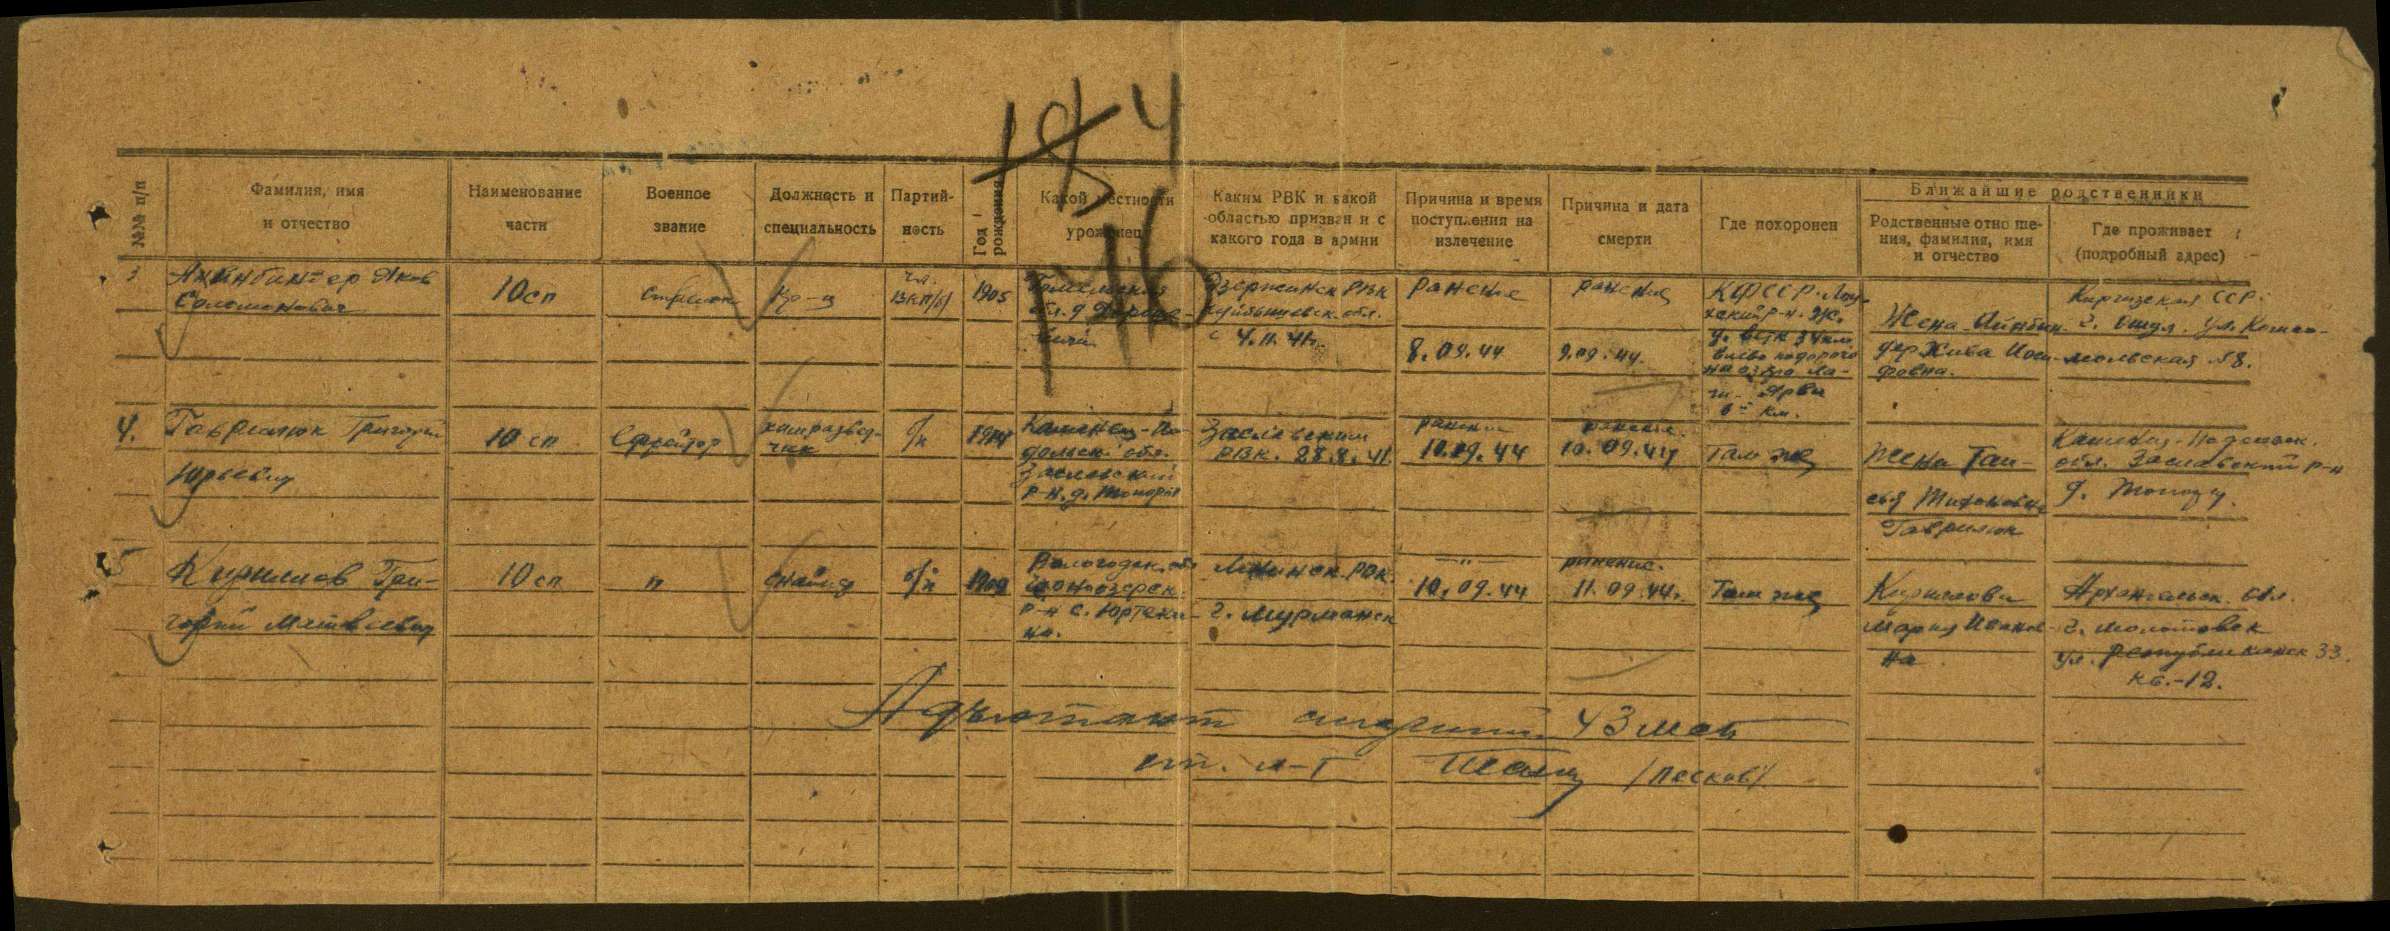 184
176
№№ п/п
Фамилия, имя
и отчество
Наименование
части
Военное
звание
Должность и
специальность
Партий-
ность
Год
рождения
Какой местности
уроженец
Каким РВК и какой
областью призван и с
какого года в армии
Причина и время
поступления на
излечение
Причина и дата
смерти
Где похоронен
Ближайшие родственники
Родственные отноше-
ния, фамилия, имя
и отчество
Где проживает
(подробный адрес)
3
Яков
Соломонович
10 сп
Стрелок
кр-ц
чл.
ВКП/б/
1905
Гомельская
обл. д.
Дзержинск РВК
Куйбышевск. обл.
с 4.11.41г.
Ранение
8.09.44
ранение
9.09.44.
КФССР. Лоу-
хский р-н. Ж.
д. ветк 34 км
влево по дороге
на озеро
6 км.
Жена
Хива Иоси-
фовна.
Киргизская ССР.
г. ул. Комсо-
мольская №8.
4.
Гаврилюк Григорий
Юрьевич
10 сп
Ефрейтор
химразвед-
чик
б/п
1914
Каменец-По-
дольск. обл.
Заславский
р-н. д.
Заславским
РВК. 28.8.41
ранение
10.09.44
ранение.
10.09.44
Там же
Жена Таи-
сья Тихоновна
Гаврилюк
Каменец-Подольск.
обл. Заславский р-н
д.
5
Кириллов Гри-
горий Матвеевич
10 сп
"
снайпер
б/п
1909
Вологодск. обл
р-н с.
Ленинск. РВК.
г. Мурманск
—"—
10.09.44
ранение.
11.09.44.
Там же
Кириллова
Мария Иванов-
на
Архангельск. обл.
г. Молотовск
ул. Республиканск 33.
кв.-12.
Адъютант старший 43 мсб
ст. л-т /Песков/